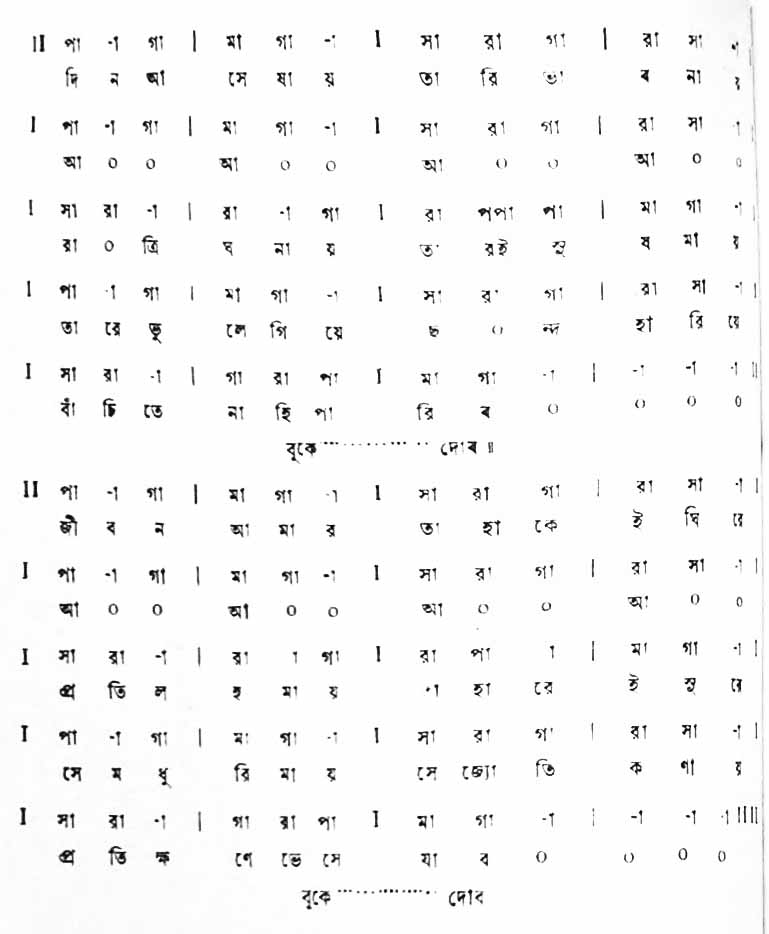 II পা -া গা | মা গা -া I সা রা গা | রা সা -া
দি ন আ সে ষা য় তা রি ভা ব না য়
I পা -া গা | মা গা -া I সা রা গা | রা সা -া |
আ ০ ০ আ ০ ০ আ ০ ০ আ ০ ০
I সা রা -া | রা -া গা I রা পপা পা | মা গা -া |
রা ০ ত্রি ঘ না য় তা রই সু ষ মা য়
I পা -া গা | মা গা -া I সা রা গা | রা সা -া |
তা রে ভূ লে গি য়ে ছ ০ ন্দ হা রি য়ে
I সা রা -া | গা রা পা I মা গা -া | -া -া -া II
বাঁ চি তে না হি পা রি ব ০ ০ ০ ০
বুকে ················ দোব ॥
II পা -া গা | মা গা -া I সা রা গা | রা সা -া |
জী ব ন আ মা র তা হা কে ই ঘি রে
I পা -া গা | মা গা -া I সা রা গা | রা সা -া |
আ ০ ০ আ ০ ০ আ ০ ০ আ ০ ০
I সা রা -া | রা া গা I রা পা া | মা গা -া |
প্র তি ল হ মা য় হা রে ই সু রে
I পা -া গা | মা গা -া I সা রা গা | রা সা -া |
সে ম ধু রি মা য় সে জ্যো তি ক ণা য়
I সা রা -া | গা রা পা I মা গা -া | -া -া -া IIII
প্র তি ক্ষ ণে ভে সে যা ব ০ ০ ০ ০
বুকে ················ দোব